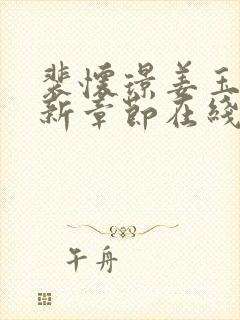 裴懷璟姜玉
新章節在綫
午舟